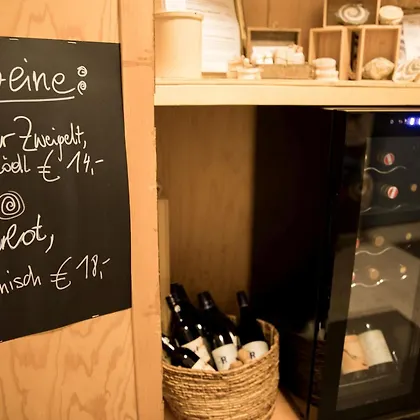 eine:
r Zweigelt,
€ 14,-
lot,
nisch € 18,-